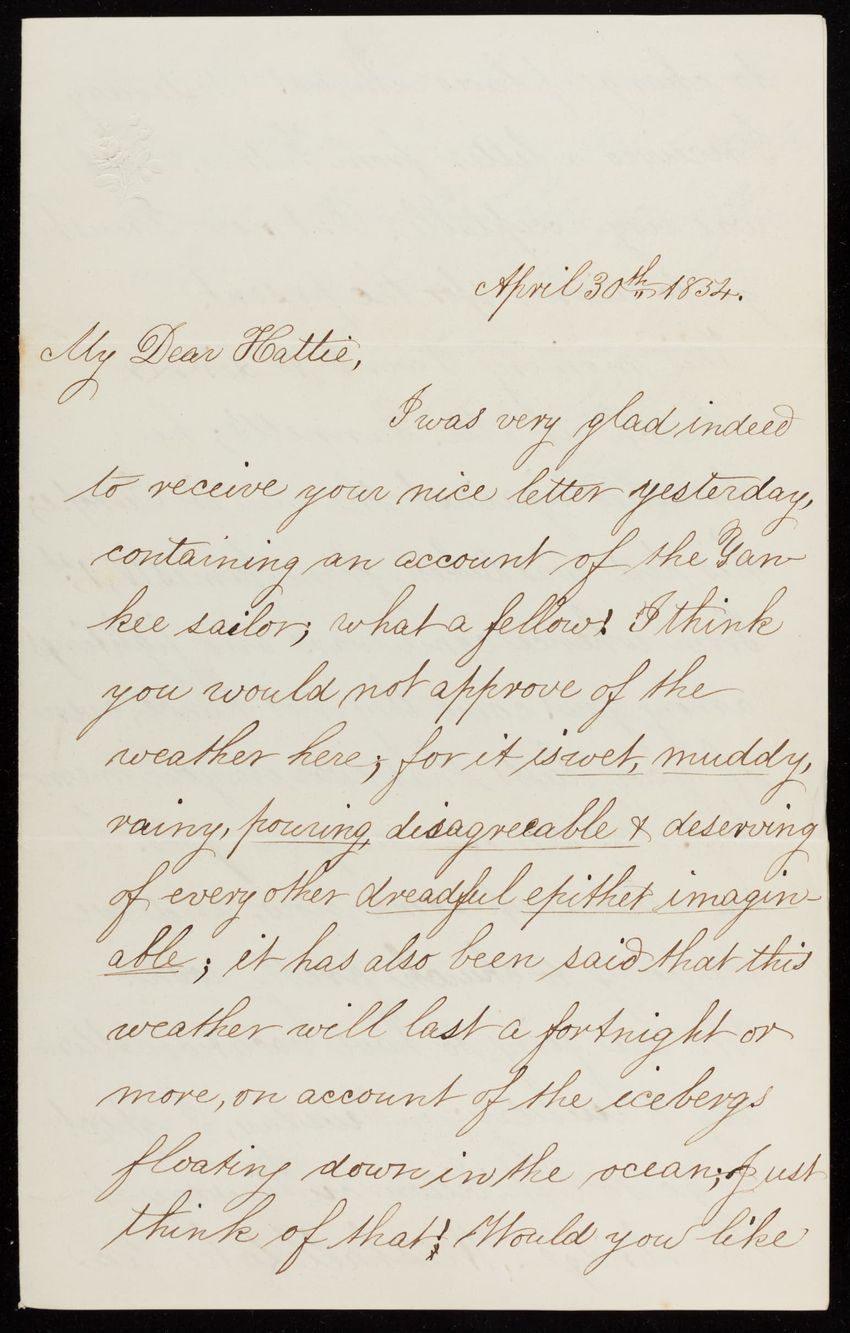 April 30th 1854.
My Dear Hattie,
I was very glad indeed
to receive your nice letter yesterday,
containing an account of the Yan-
kee sailor; what a fellow! I think
you would not approve of the
weather here; for it is wet, muddy,
rainy, pouring, disagreeable & deserving
of every other dreadful epithet imagin-
able; it has also been said that this
weather will last a fortnight or
more, on account of the icebergs
floating down in the ocean; Just
think of that! Would you like